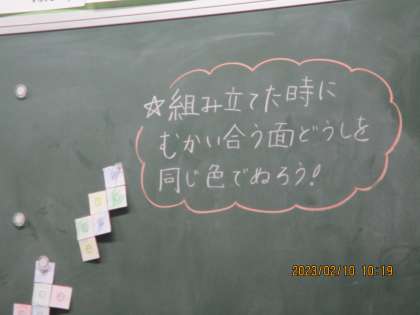 ☆組み立てた時に
むかい合う面どうしを
同じ色でぬろう!
2023/02/10 10:19